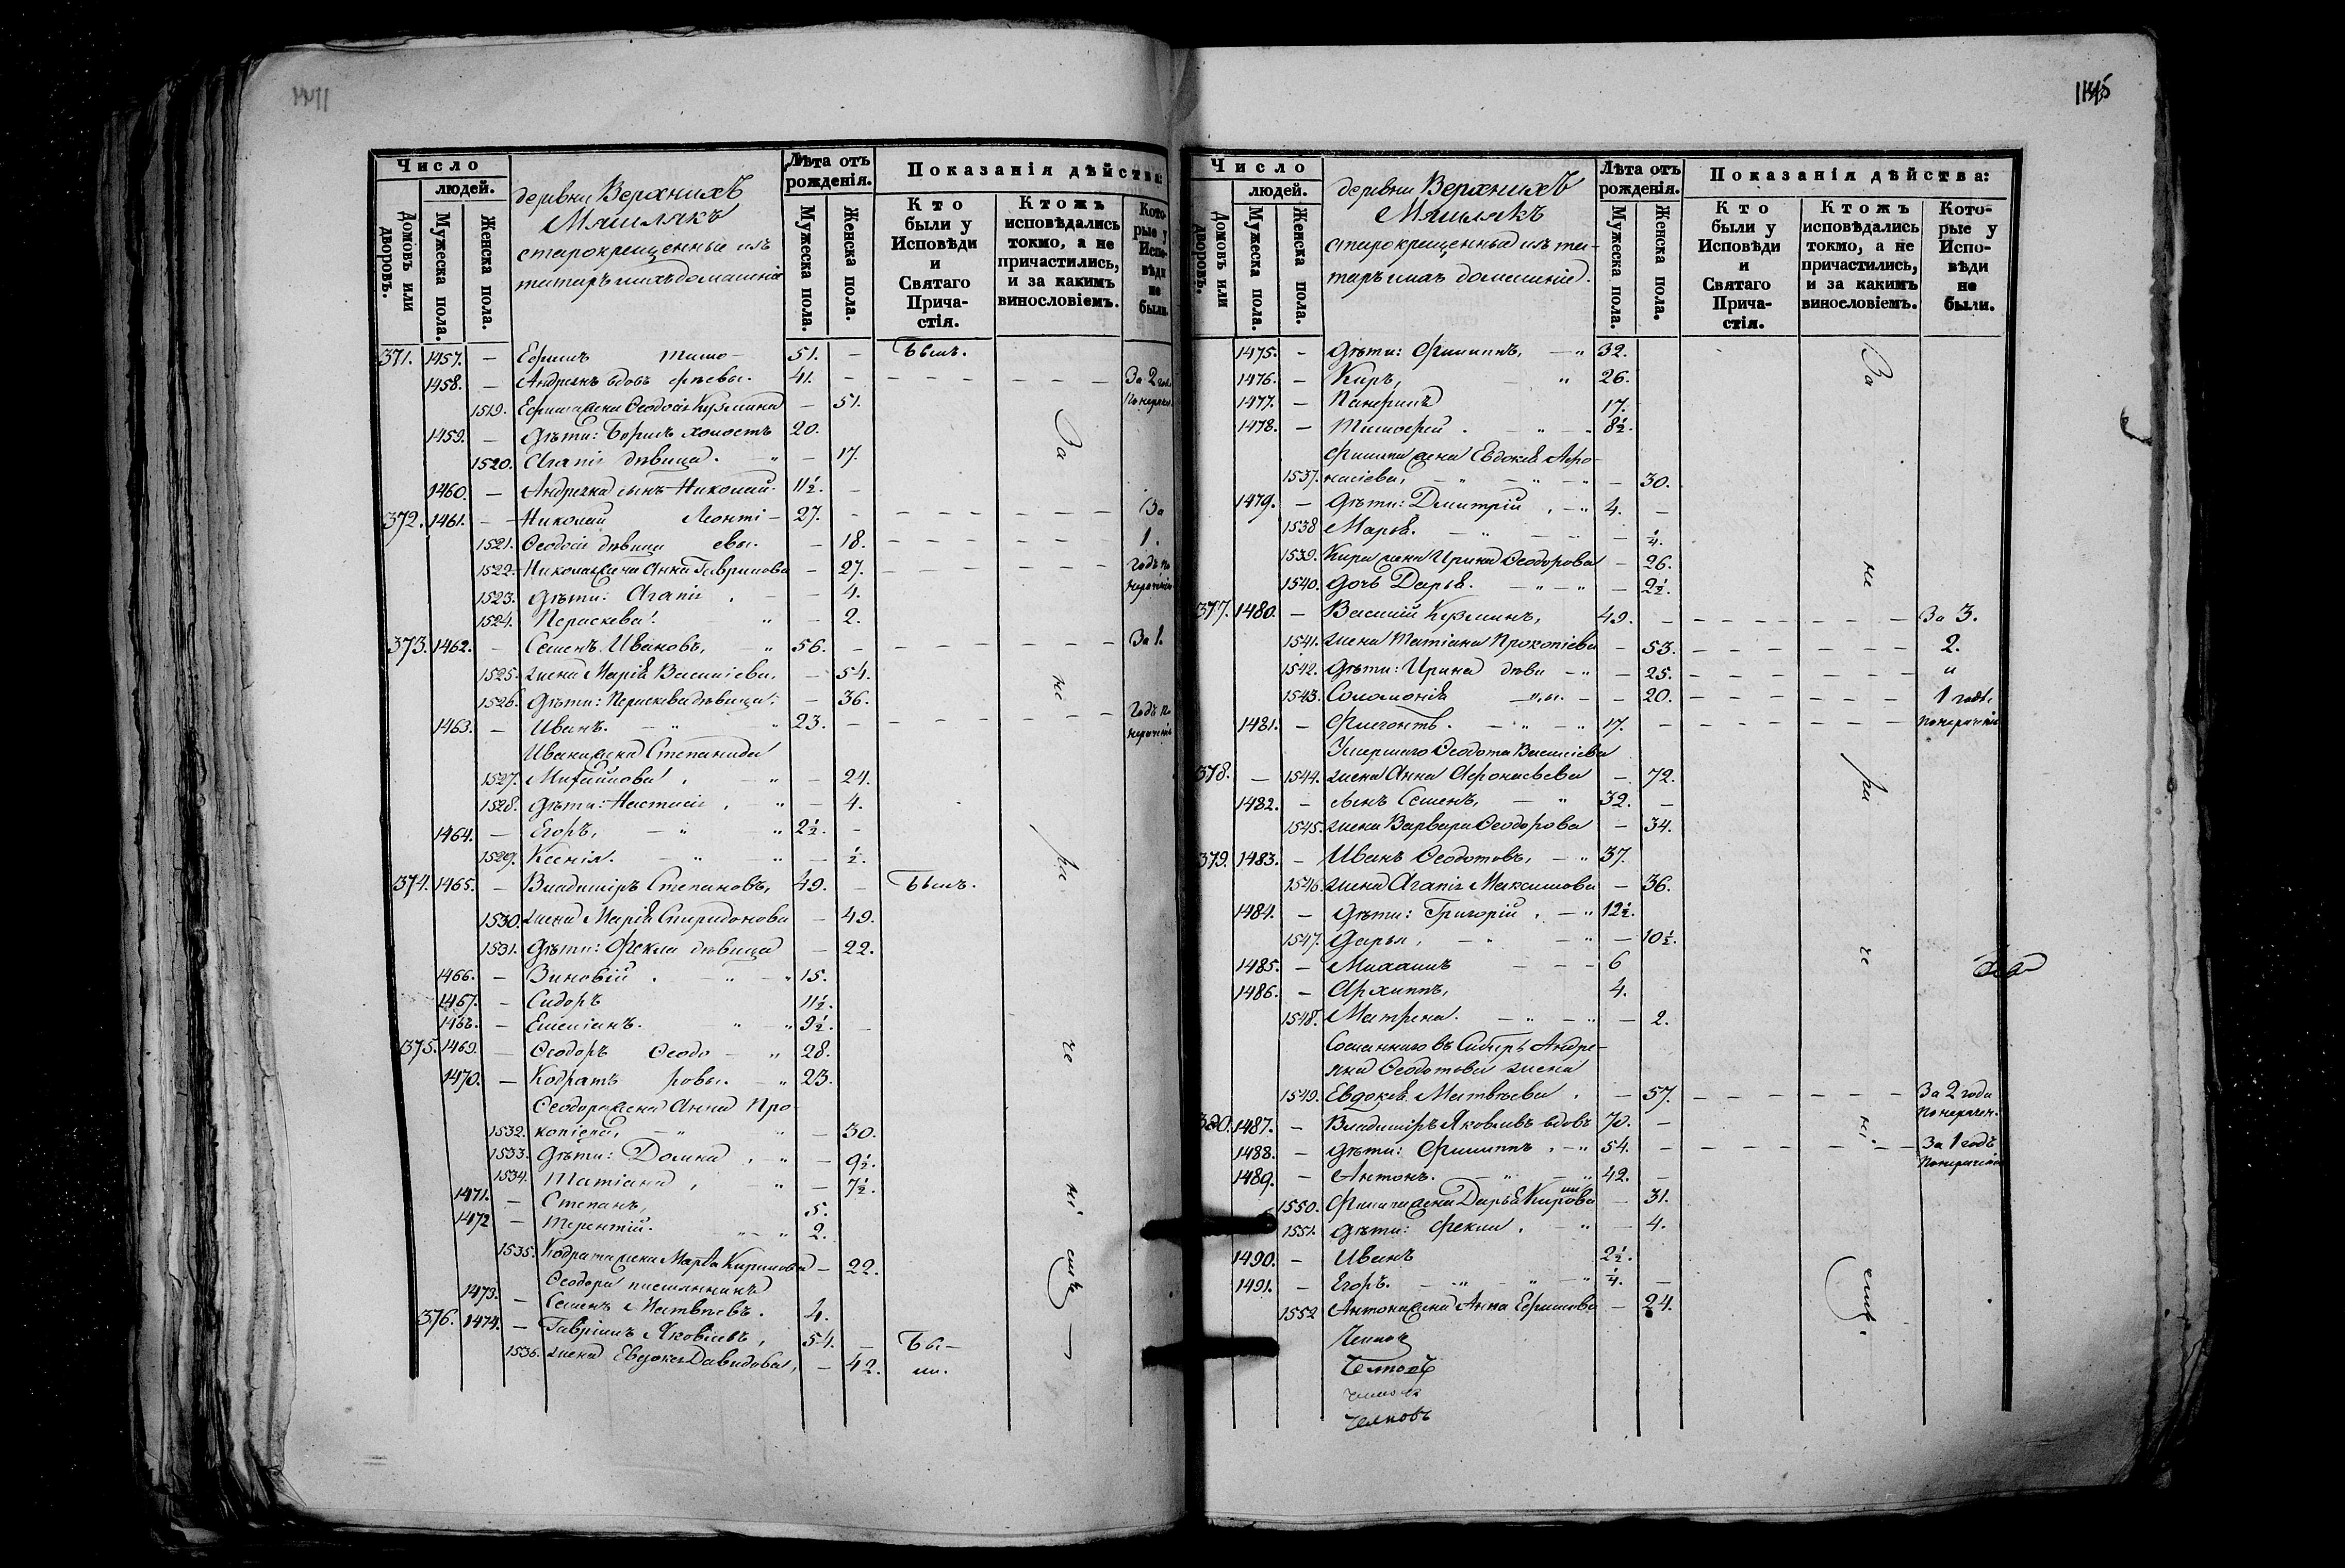 1145
Число
людей.
Домовъ или дворовъ.
Мужеска пола.
Женска пола.
деревни Верхнихъ
Машлякъ
старокрещенные изъ
татаръ ихъ домашніе
Лѣта отъ рожденія.
Мужеска пола.
Женска пола.
Показанія дѣйства:
Кто были у Исповѣди и Святаго Причастія.
Ктожъ исповѣдались токмо, а не причастились, и за какимъ винословіемъ.
Которые у Исповѣди не были.
371. 1457. — Ефимъ Тимо- 51. — Былъ.
1458. — Андреянъ вдовъ фѣевы. 41. — За 2 год.
1519. Ефима жена Ѳеодосія Кузмина — 51. по нерачен.
1459. — Дѣти: Борисъ холостъ 20.
1520. Агапія дѣвица. — 17.
1460. — Андреяна сынъ Николай. 11½. —
372. 1461. — Николай Леонті- 27. — За
1521. Ѳеодосія дѣвица евы. — 18. 1.
1522. Николая жена Анна Гаврилова — 27. годъ по
1523. Дѣти: Агапія, — 4. нераченію
1524. Параскева. — 2.
373. 1462. — Семенъ Ивановъ, 56. — За 1.
1525. жена Марія Василіева. — 54.
1526. Дѣти: Параскева дѣвица, — 36.
1463. — Иванъ. 23. — годъ по
нераченію
Ивана жена Степанида
1527. Михайлова, — 24.
1528. Дѣти: Настасія, — 4.
1464. — Егоръ, 2½. —
1529. Ксенія. — ½.
374. 1465. — Владиміръ Степановъ, 49. — Былъ.
1530. жена Марія Спиридонова — 49.
1531. Дѣти: Фекла дѣвица — 22.
1466. — Зиновій. 15.
1467. — Сидоръ 11½.
1468. — Емеліанъ. 9½. —
375. 1469. — Ѳеодоръ Ѳеодо- 28.
1470. — Кодратъ ровы. 23.
Ѳеодора жена Анна Про-
1532. копіева, — 30.
1533. Дѣти: Домна, — 9½.
1534. Татіана, — 7½.
1471. — Степанъ, 5.
1472 — Терентій. 2.
1535. Кодрата жена Марѳа Кирилова — 22.
Ѳеодора племянникъ
1473. — Семенъ Матвѣевъ. 4.
376. 1474. — Гавріилъ Яковлевъ, 54. — Бы-
1536. жена Евдокія Давидова, — 42. ли.
За
не
ра
че
ні
емъ
Число
людей.
Домовъ или дворовъ.
Мужеска пола.
Женска пола.
деревни Верхнихъ
Машлякъ
старокрещенныя изъ та-
таръ ихъ домашніе.
Лѣта отъ рожденія.
Мужеска пола.
Женска пола.
Показанія дѣйства:
Кто были у Исповѣди и Святаго Причастія.
Ктожъ исповѣдались токмо, а не причастились, и за какимъ винословіемъ.
Которые у Исповѣди не были.
1475. — Дѣти: Филиппъ, 32.
1476. — Киръ, 26.
1477. — Панфилъ 17.
1478. — Тимофей. 8½.
Филиппа жена Евдокія Афо-
1537. насіева, — 30.
1479. — Дѣти: Дмитрій, 4. —
1538 Марья. — ¼.
1539. Кира жена Ирина Ѳеодорова — 26.
1540. дочь Дарья. — 2½.
377. 1480. — Василій Кузминъ, 49. — За 3.
1541. жена Татіана Прокопіева — 53. 2.
1542. Дѣти: Ирина дѣви — 25. и
1543. Соломонія — 20. 1 годъ.
1481. — Флегонтъ. 17. — по нераченію
Умершаго Ѳеодота Василіева
378. — 1544. жена Анна Афонасьева — 72.
1482. — сынъ Семенъ, 32. —
1545. жена Варвара Ѳеодорова — 34.
379. 1483. — Иванъ Ѳеодотовъ, 37.
1546. жена Агапія Максимова — 36.
1484. — Дѣти: Григорій, 12½.
1547. Дарья, — 10½.
1485. — Михаилъ 6
1486. — Архиппъ, 4.
1548. Матрена. — 2.
Сосланнаго въ Сибирь Андре-
яна Ѳеодотова жена
1549. Евдокія Матвѣева. — 57. За 2 года
по нерачен.
380. 1487. — Владиміръ Яковлевъ вдовъ 70. —
1488. — Дѣти: Филиппъ, 54. — За 1 годъ
по нераченію
1489. — Антонъ. 42. —
1550. Филиппа жена Дарья Кирилова — 31.
1551. Дѣти: Фекла. — 4.
1490. — Иванъ 2½.
1491. — Егоръ. ¼. —
1552 Антона жена Анна Ефимова — 24.
За
не
ра
че
ні
емъ.